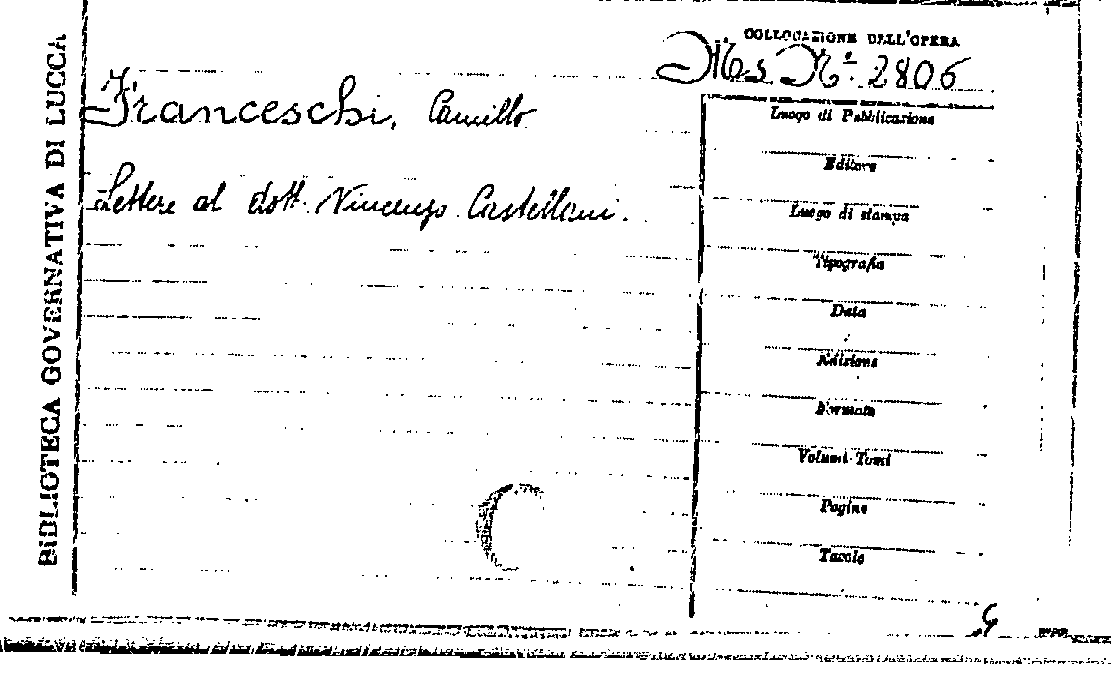 BIBLIOTECA GOVERNATIVA DI LUCCA
COLLOCAZIONE DELL'OPERA
Mss Nº. 2806
Franceschi, Camillo
Lettere al dott. Vincenzo Castellani.
Luogo di Pubblicazione
Editore
Luogo di stampa
Tipografia
Data
Edizione
Formato
Volumi-Tomi
Pagine
Tavole
C